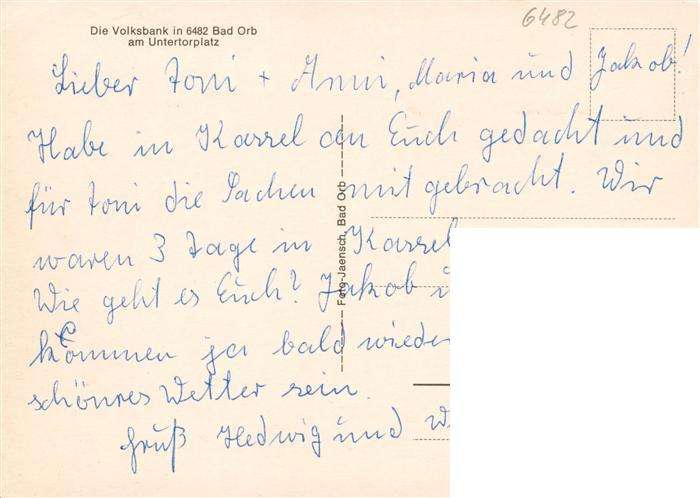 6482
Die Volksbank in 6482 Bad Orb
am Untertorplatz
Lieber Toni + Anni, Maria und Jakob!
Habe in Kassel an Euch gedacht und
für Toni die Sachen mitgebracht. Wir
waren 3 Tage in Kassel
Wie geht es Euch? Jakob
kommen ja bald wieder
schönres Wetter sein.
Gruß Hedwig und
Foto-Jaensch, Bad Orb